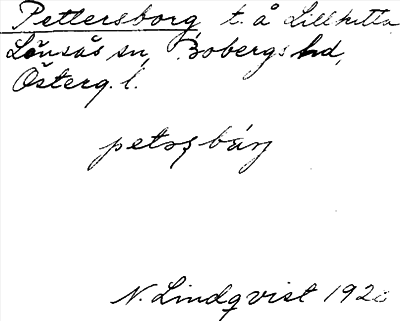 Pettersborg, t. å Lillhutta
Lönsås sn, Bobergs hd,
Österg. l.
petəşbárj
N. Lindqvist 192